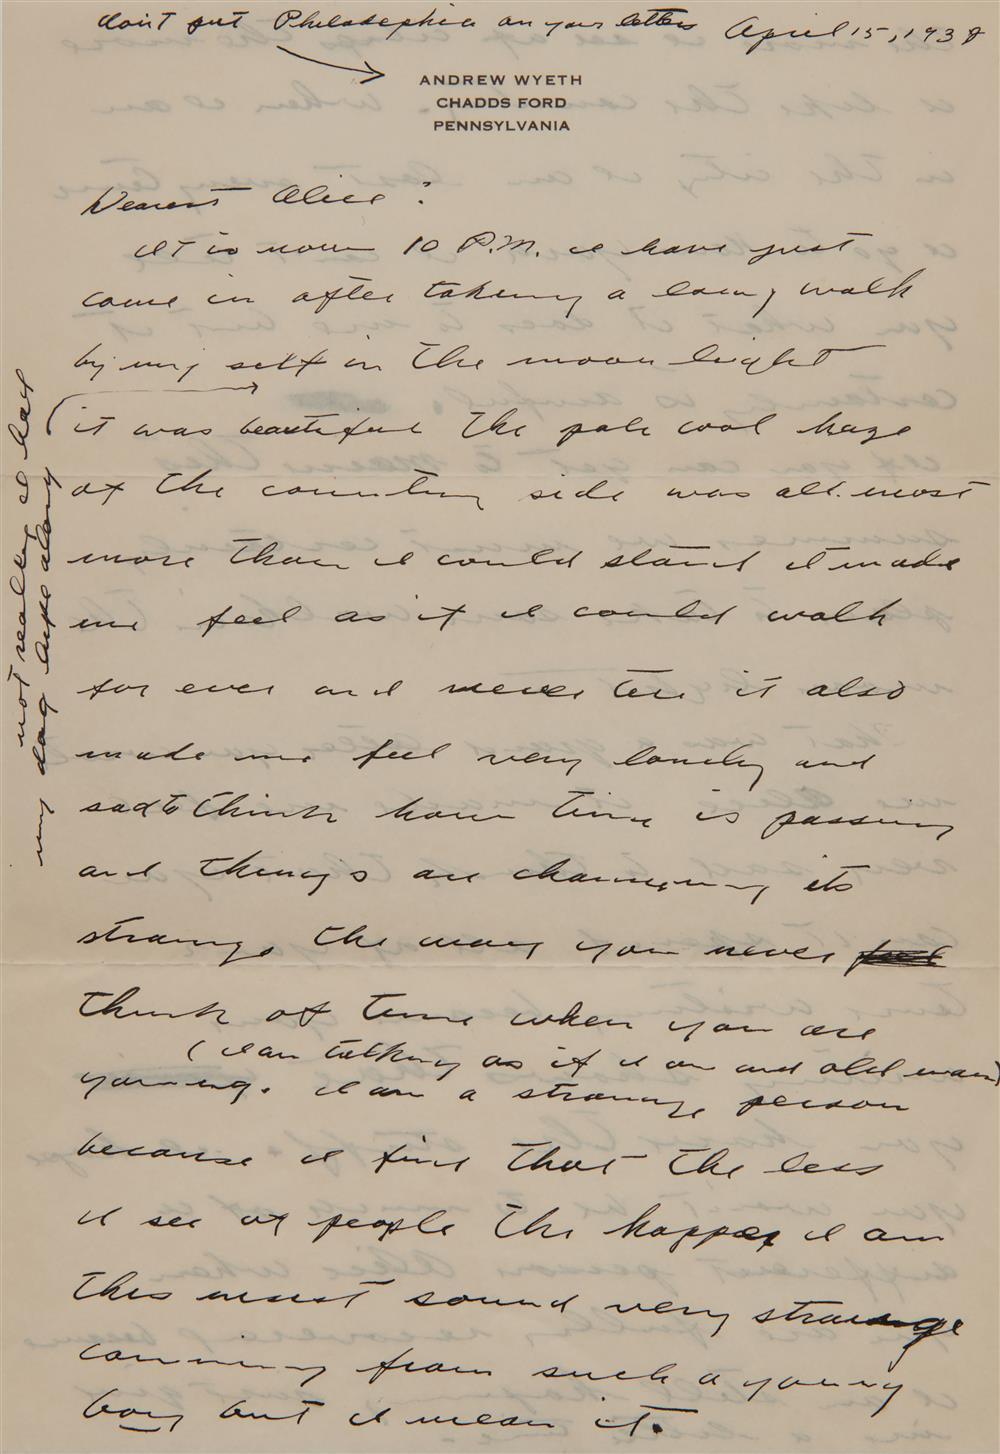 don't put Philadelphia on your letters
April 15, 1938
ANDREW WYETH
CHADDS FORD
PENNSYLVANIA
Dearest Alice:
It is now 10 P.M. I have just
come in after taking a long walk
by my self in the moon light
not really I had
my dog Lupe along
it was beautiful the pale cool haze
of the country side was all-most
more than I could stand it made
me feel as if I could walk
for ever and never tire it also
made me feel very lonely and
sad to think how time is passing
and things are changeing its
strange the way you never feel
think of time when you are
(I am talking as if I am and old man)
young. I am a strange person
because I find that the less
I see of people the happey I am
this must sound very strange
comming from such a young
boy but I mean it.